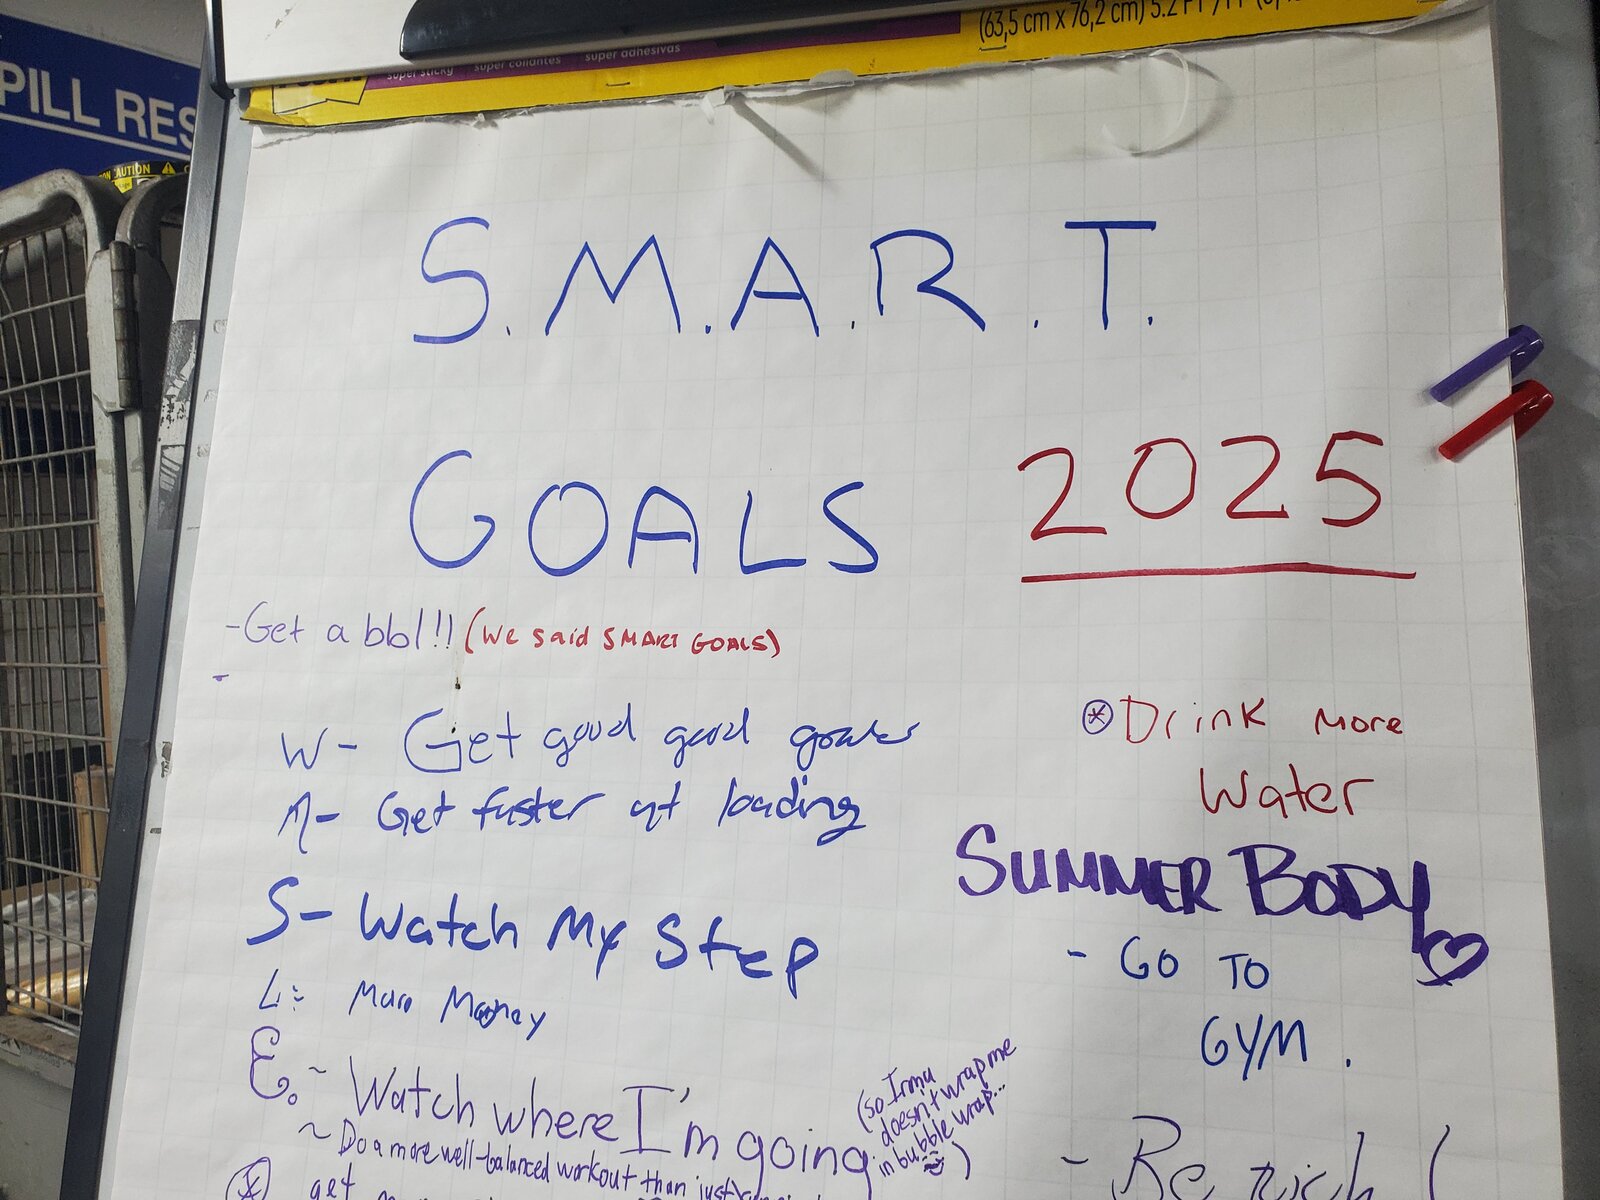 (63,5 cm x 76,2 cm) 5.2
super sticky super collantes super adhesivas
PILL RES
CAUTION
S.M.A.R.T.
GOALS 2025
-Get a bbl!! (We said SMART GOALS)
-
W- Get good good
A- Get faster at loading
S- Watch My Step
L: More Money
E. ~ Watch where I'm going (so Irma doesn't wrap me in bubble wrap...)
~ Do a more well-balanced workout than just
get
* Drink More
Water
SUMMER BODY
- GO TO
GYM.
- Be rich (